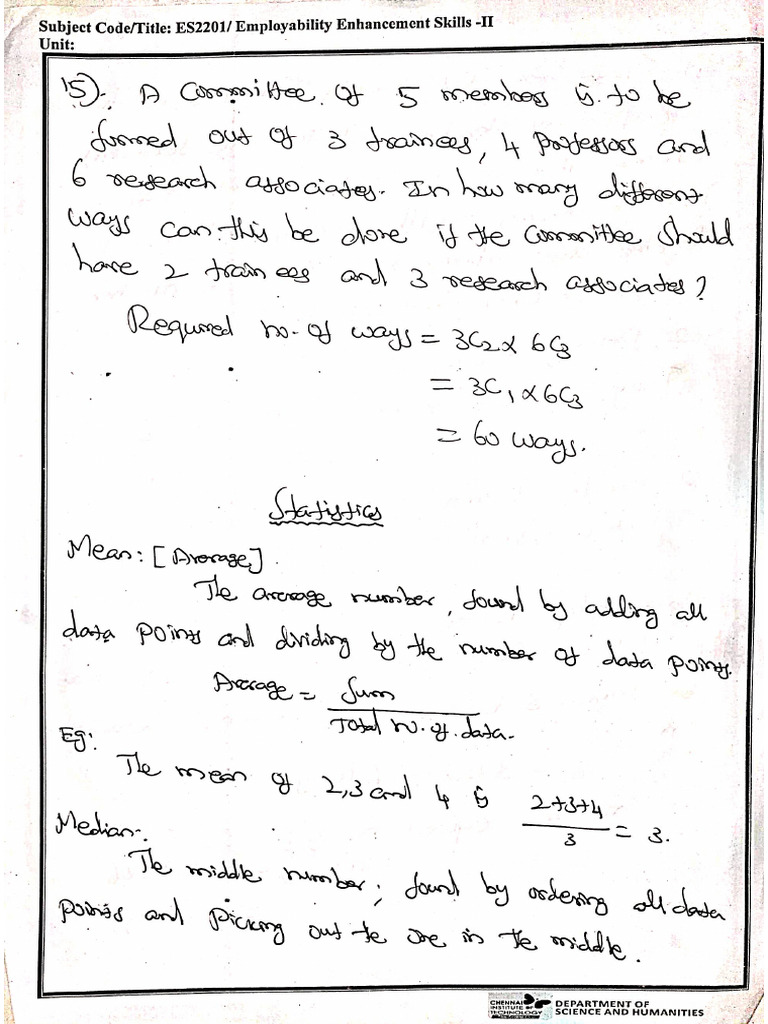 Subject Code/Title: ES2201/ Employability Enhancement Skills -II
Unit:
15). A Committee of 5 members is to be
formed out of 3 trainees, 4 Professors and
6 research associates. In how many different
ways can this be done if the Committee should
have 2 trainees and 3 research associates?
Required no. of ways = 3C2 x 6C3
= 3C1 x 6C3
= 60 ways.
Statistics
Mean: [Average]
The average number, found by adding all
data points and dividing by the number of data points.
Average = Sum
Total no. of. data.
Eg:
The mean of 2,3 and 4 is 2+3+4
3 = 3.
Median-.
The middle number; found by ordering all data
points and picking out the one in the middle.
CHENNAI
INSTITUTE OF
TECHNOLOGY
DEPARTMENT OF
SCIENCE AND HUMANITIES